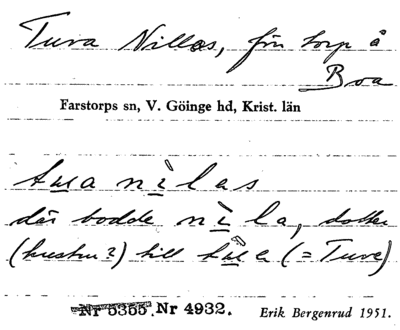 Tuva Nillas, frn torp å
Boa
Farstorps sn, V. Göinge hd, Krist. län
tu̲a nì̲las
där bodde nì̲la, dotter
(hustru?) till tu̲a (= Tuve)
Nr 5355. Nr 4932. Erik Bergenrud 1951.